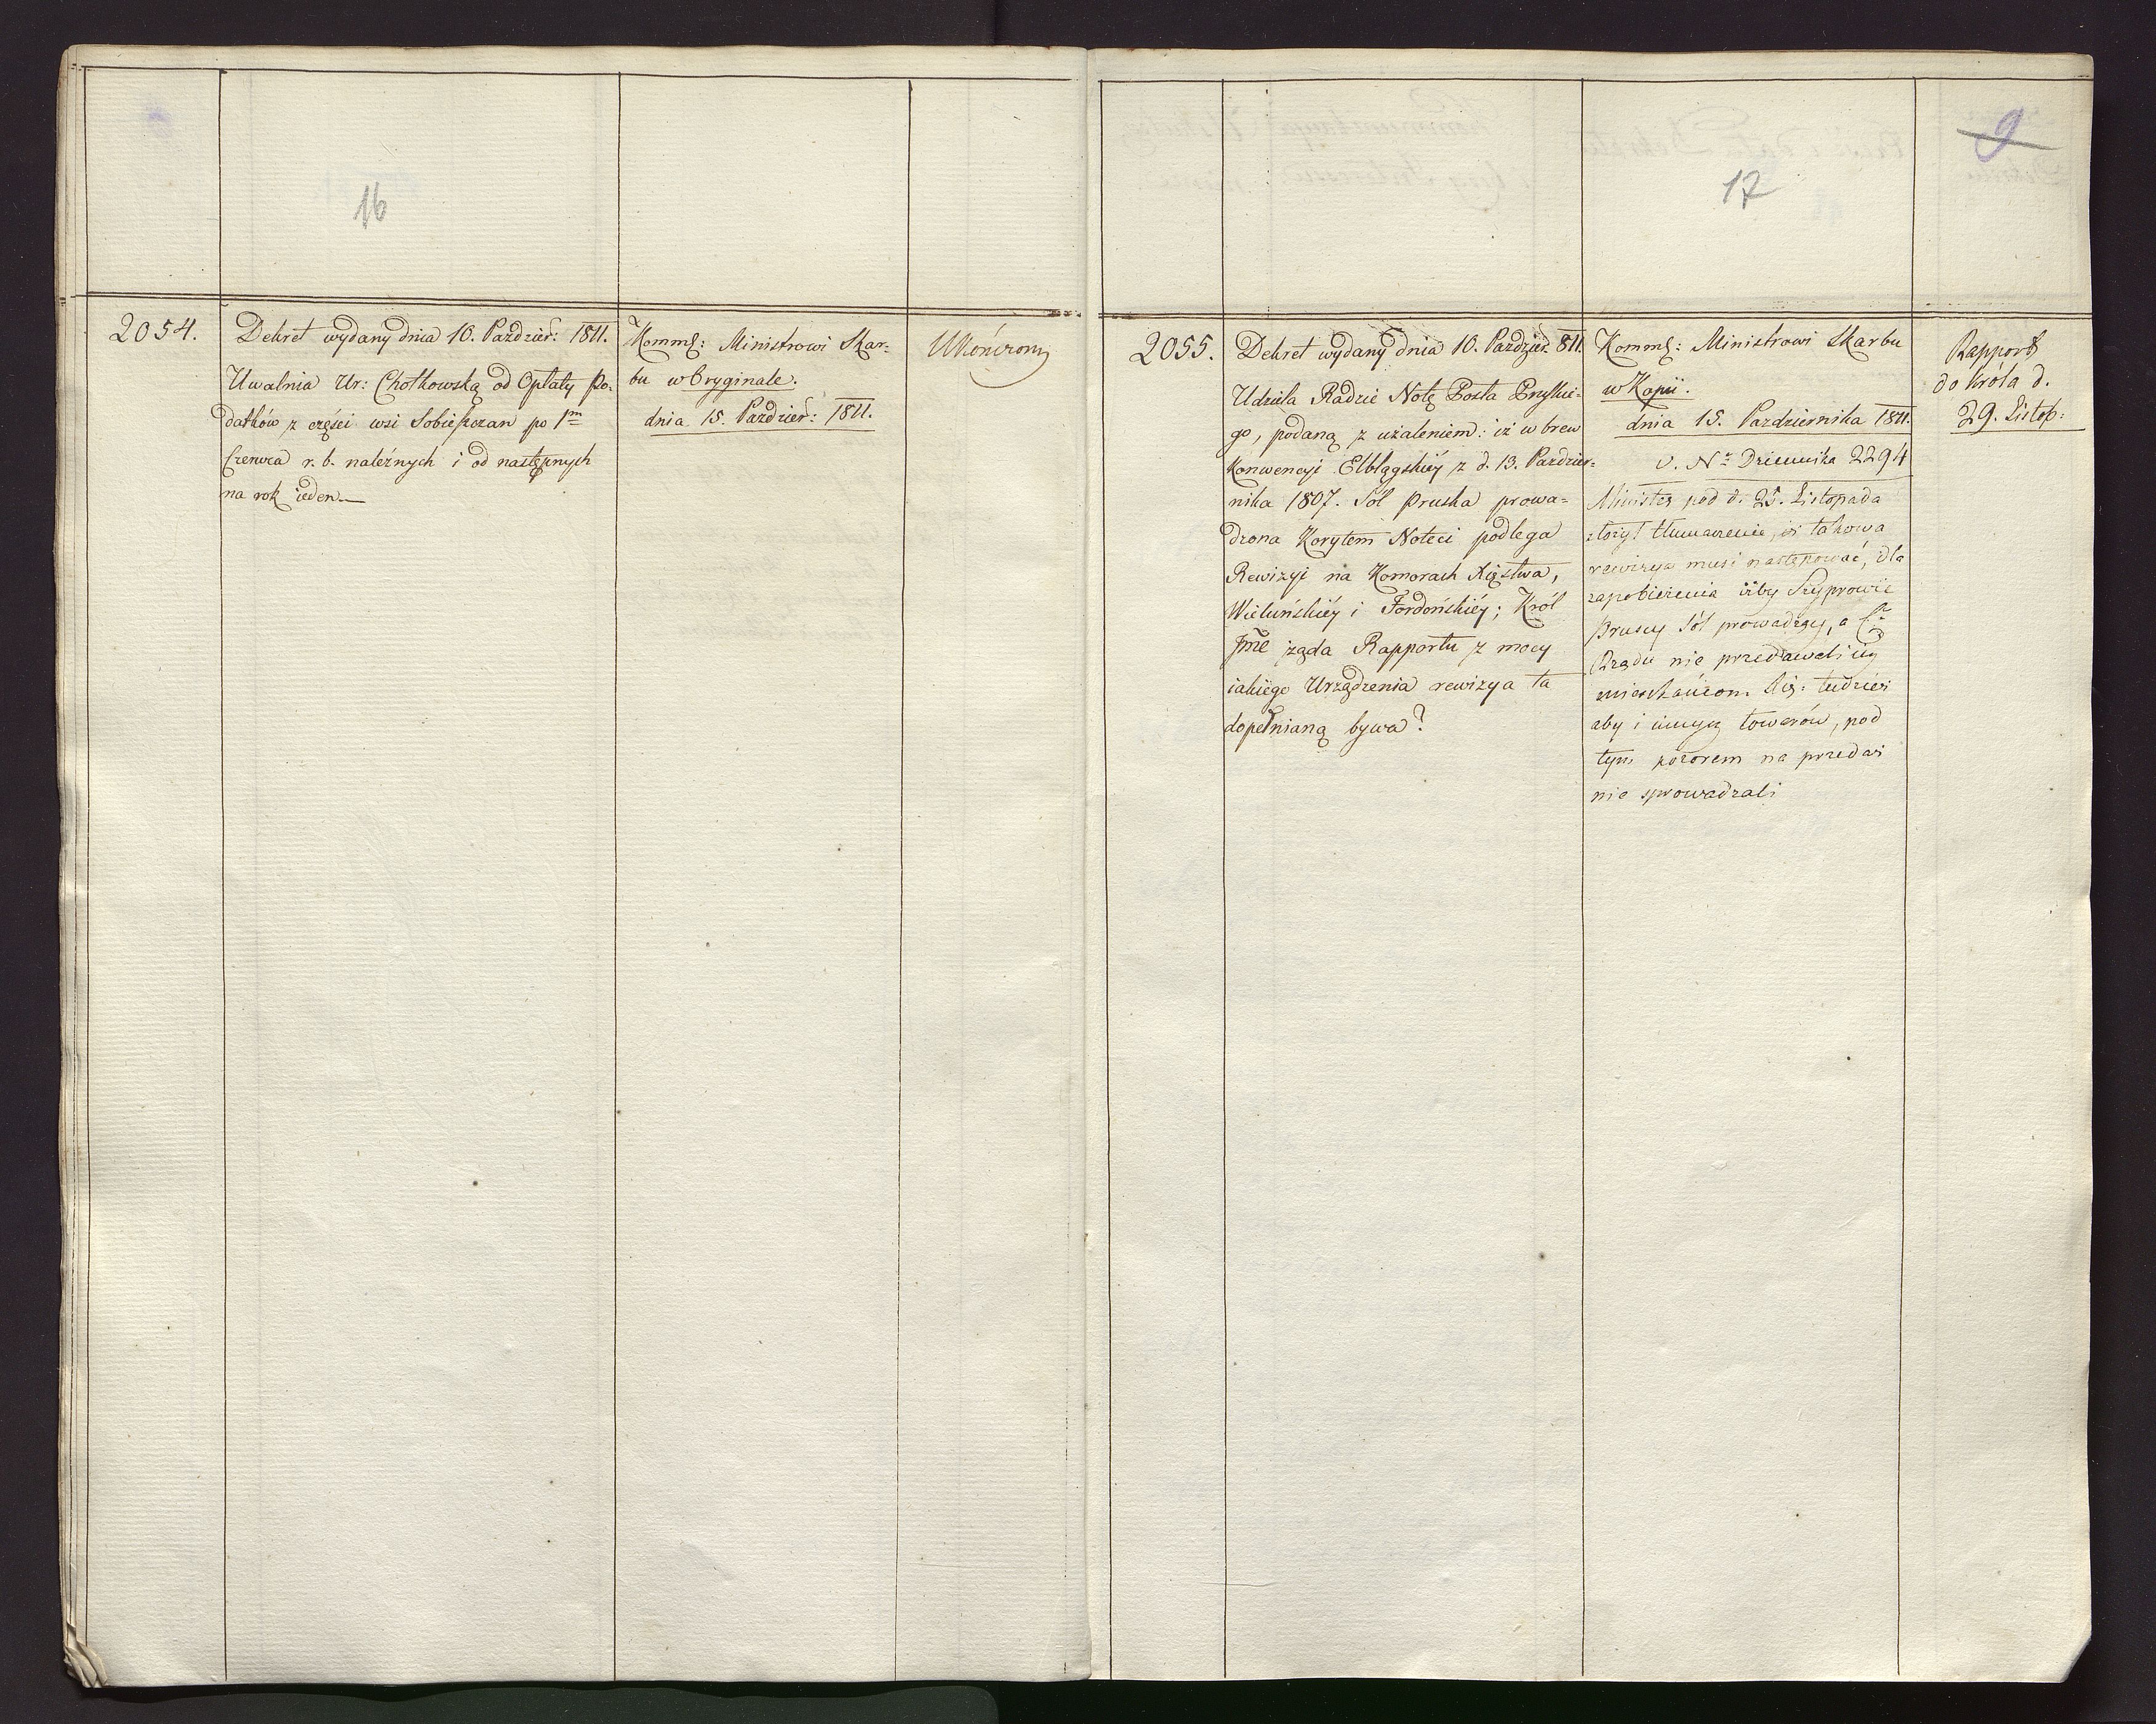 16
2054.
Dekret wydany dnia 10. Paździer: 1811.
Uwalnia Ur: Chotkowską od Opłaty Po-
datków z części wsi Sobieszczan po 1m
Czerwca r. b. należnych i od następnych
na rok ieden.
Komm: Ministrowi Skar-
bu w Oryginale.
dnia 15. Paździer: 1811.
Ukończony
17
9
2055.
Dekret wydany dnia 10. Paździer. 811.
Udziela Radzie Notę Posła Pruskie-
go, podaną z użaleniem: iż w brew
Konwencyi Elblągskiéy z d. 13. Paździer-
nika 1807. Sól Pruska prowa-
dzona Korytem Noteci podlega
Rewizyi na Komorach Xięstwa,
Wieluńskiéy i Fordońskiéy; Król
Jmć żąda Rapportu z mocy
iakiego Urządzenia rewizya ta
dopełnianą bywa?
Komm: Ministrowi Skarbu
w Kopii.
dnia 15. Pazdziernika 1811.
v. Nr Dziennika 2294
Minister pod d. 25. Listopada
złożył tłumaczenie, iż takowa
rewizya musi następować, dla
zapobieżenia iżby Szyprowie
Pruscy Sól prowadzący, a
Rządu nie przedawali iéy
mieszkańcom Xię: tudzież
aby i innych towarów, pod
tym pozorem na przedaż
nie sprowadzali
Rapport
do Króla d.
29. Listop: